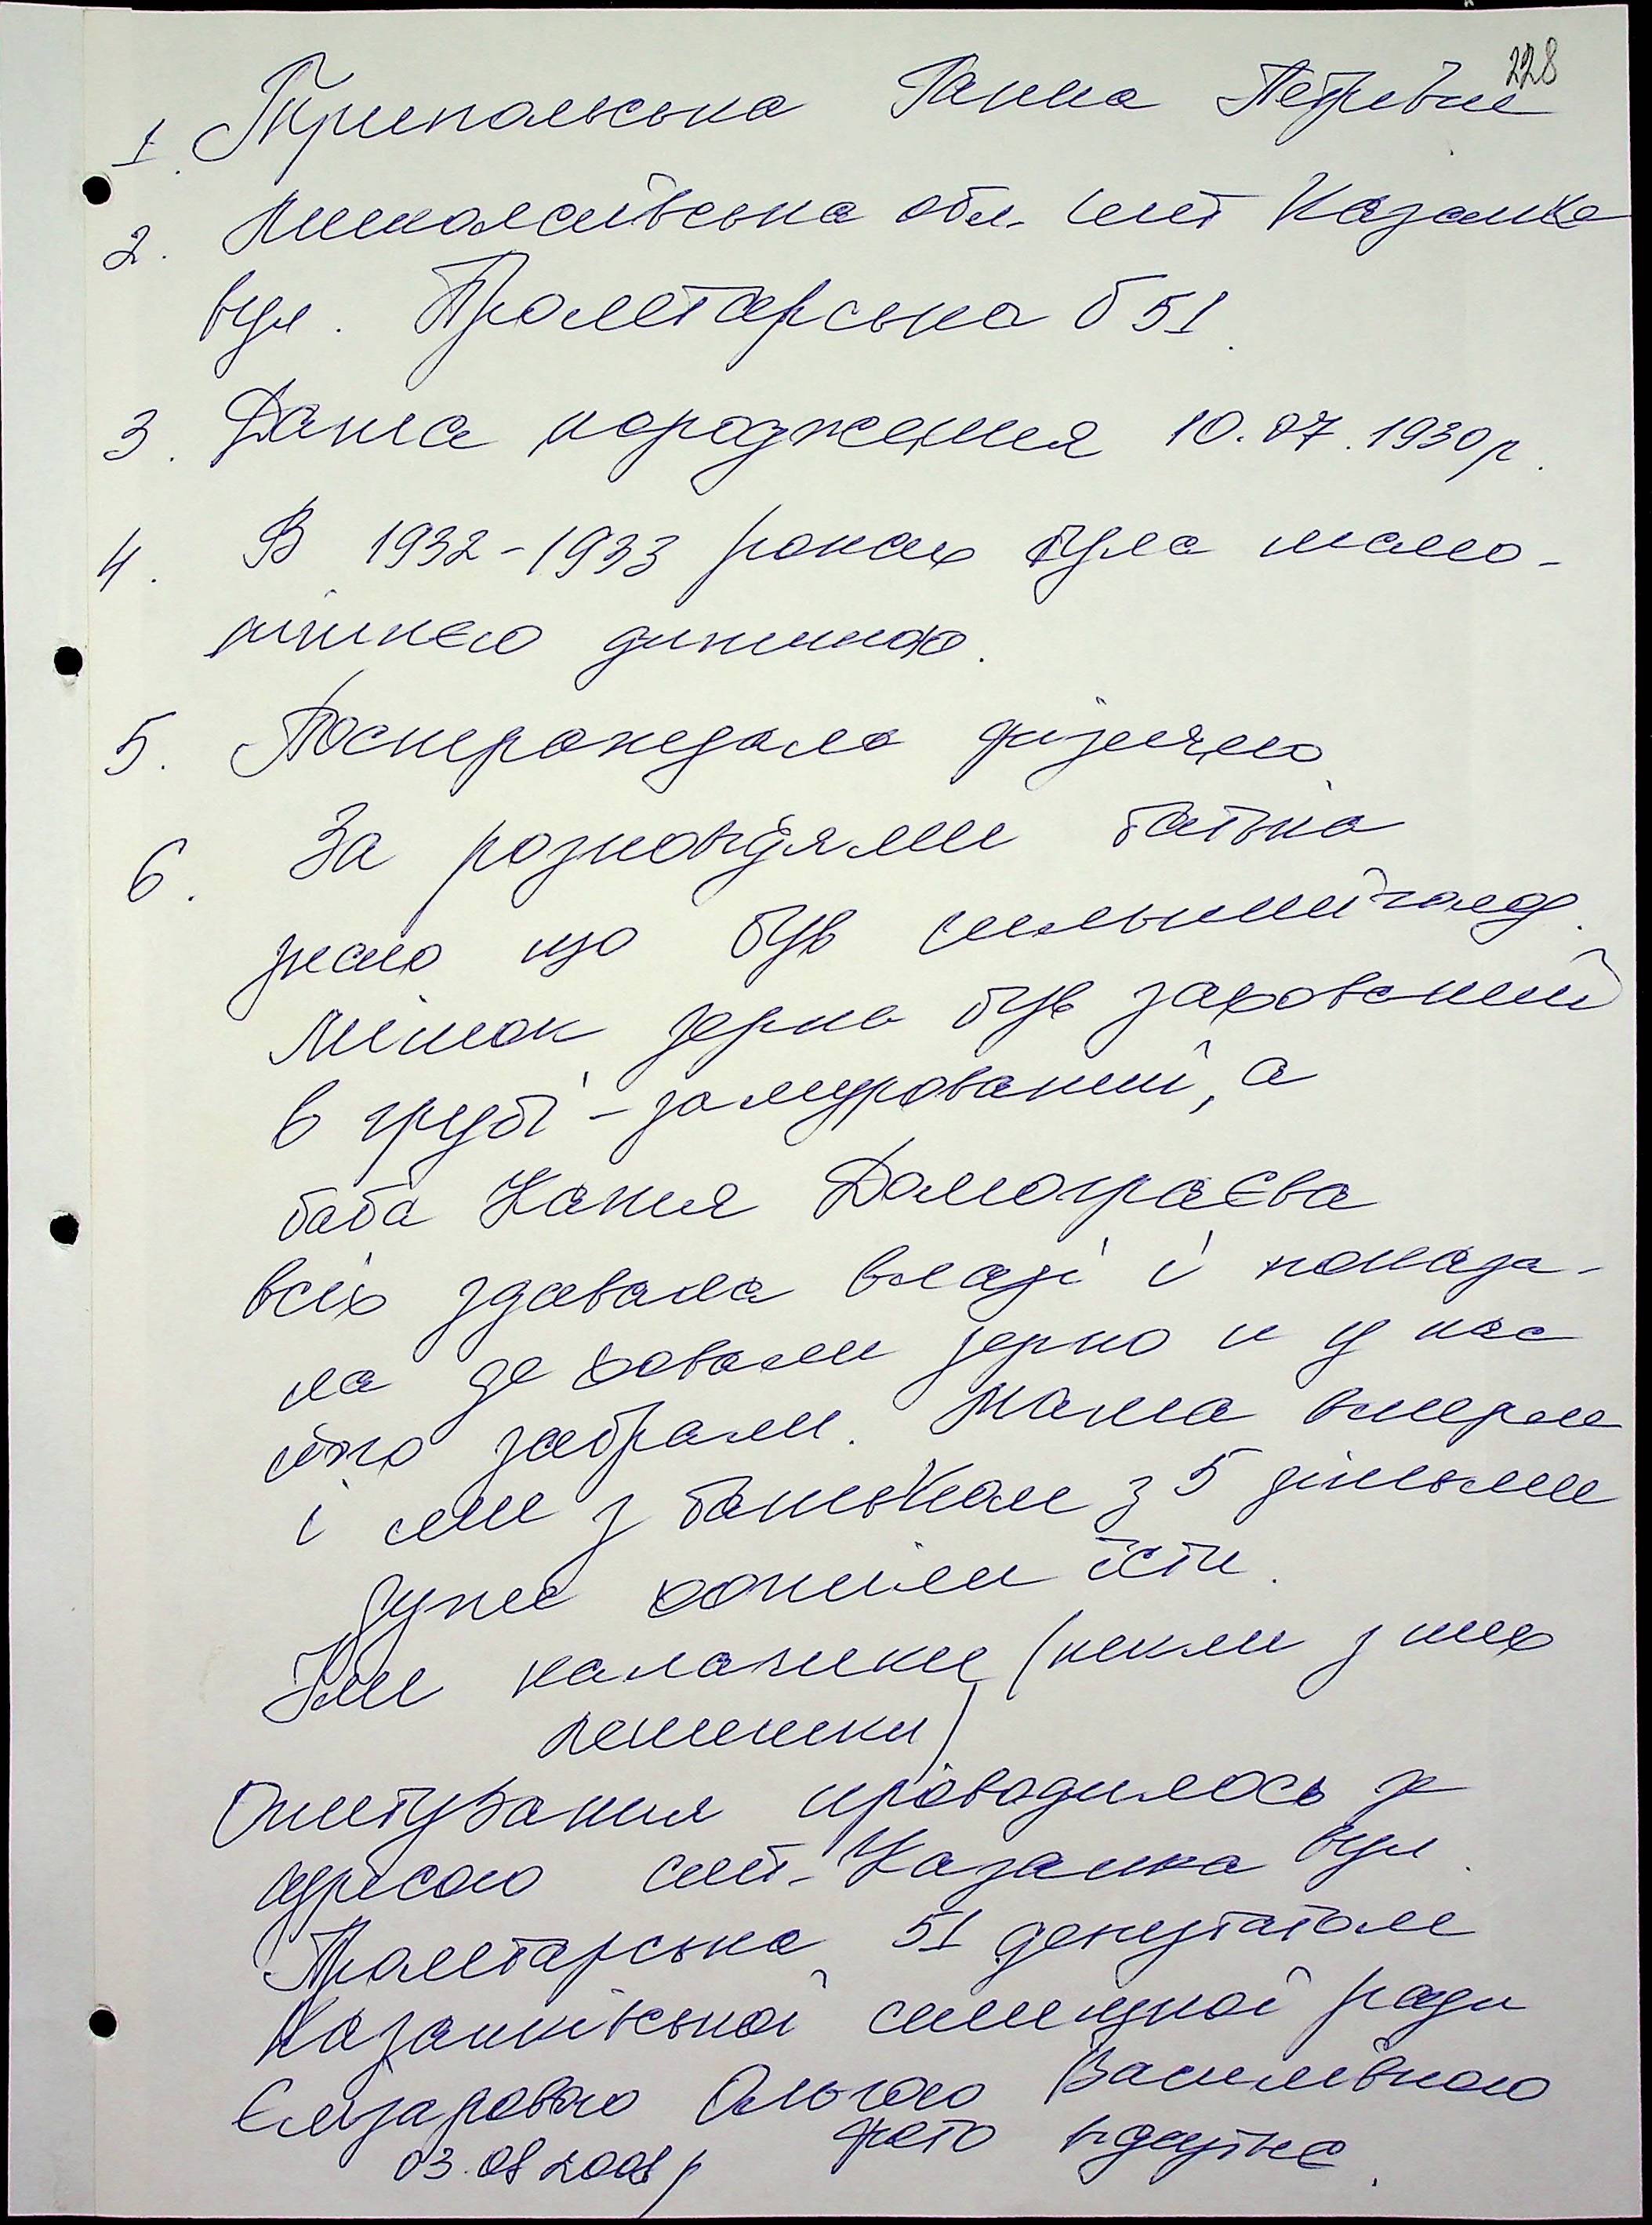 228
1. Трипольська Ганна Петрівна
2. Миколаївська обл. смт Казанка
вул. Пролетарська б 51.
3. Дата народження 10.07.1930р.
4. В 1932-1933 роках була мало-
літнєю дитиною.
5. Постраждала фізично.
6. За розповідями батька
знаю що був сильний голод.
Мішок зерна був захований
в грубі - замурований, а
баба Катя Домограєва
всіх здавала владі і показа-
ла де ховали зерно и у нас
його забрали. Мама вмерла
і ми з батьком з 5 дітьми
дуже хотіли їсти.
Їли калачики (пекли з них
лепешки)
Опитування проводилось за
адресою смт. Казанка вул.
Пролетарська 51 депутатом
Казанківської селищної ради
Єлізаровою Ольгою Василівною
03.08 2008р фото відсутнє.